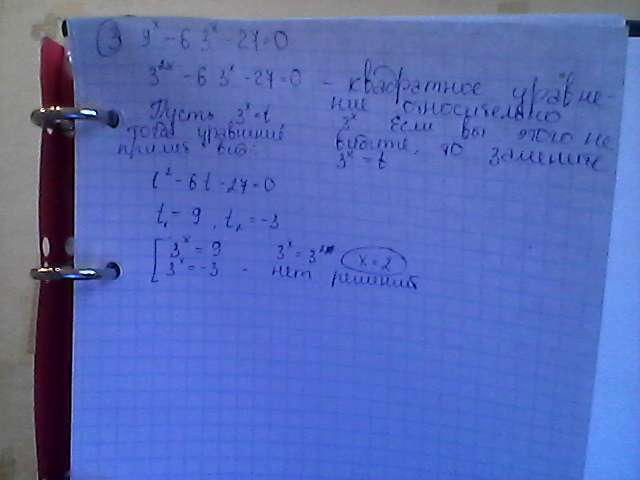 3 9ˣ - 6 3ˣ - 27 = 0
3²ˣ - 6 3ˣ - 27 = 0 - квадратное уравне-
ние относительно
3ˣ Если вы этого не
видите, то замените
3ˣ = t
Пусть 3ˣ = t
тогда уравнение
примет вид:
t² - 6t - 27 = 0
t₁ = 9, t₂ = -3
[ 3ˣ = 9 3ˣ = 3² x = 2
3ˣ = -3 - нет решений